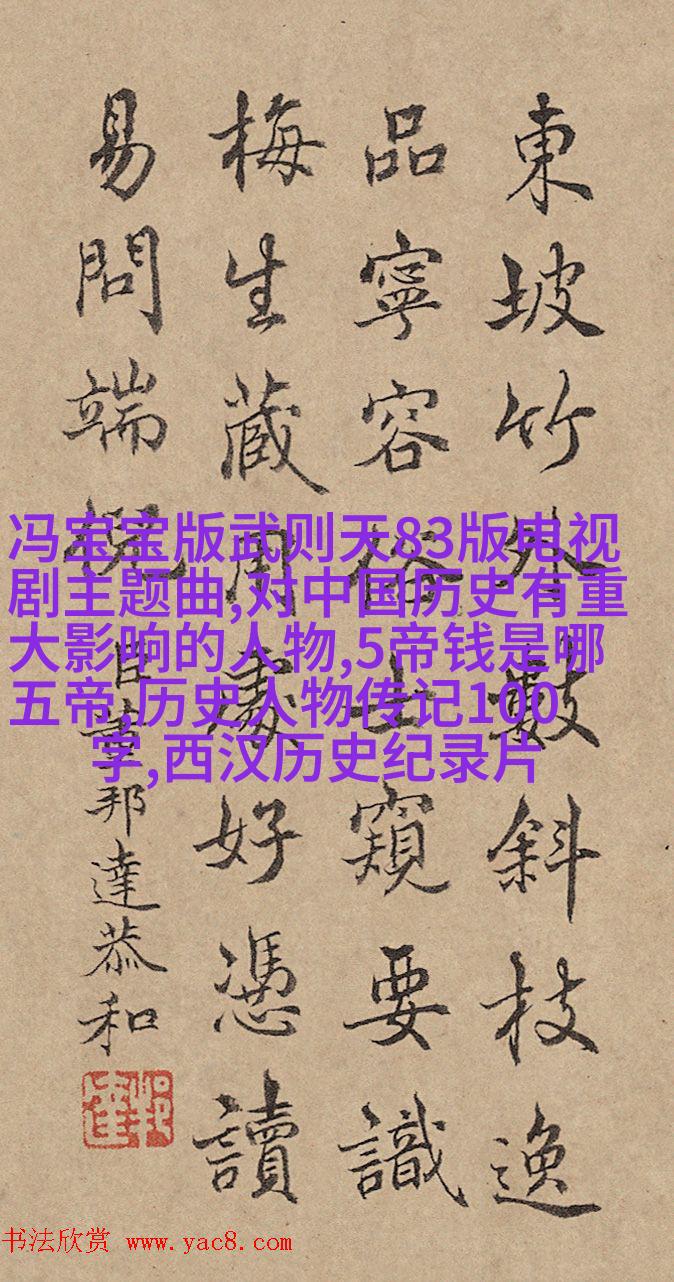 東坡竹外數斜枝逸
品寧容俗士窺要識
梅生藏用處好憑讀
易問端倪臣董邦達恭和
冯宝宝版武则天83版电视
剧主题曲,对中国历史有重
大影响的人物,5帝钱是哪
五帝,历史人物传记100
字,西汉历史纪录片
书法欣赏 www.yac8.com